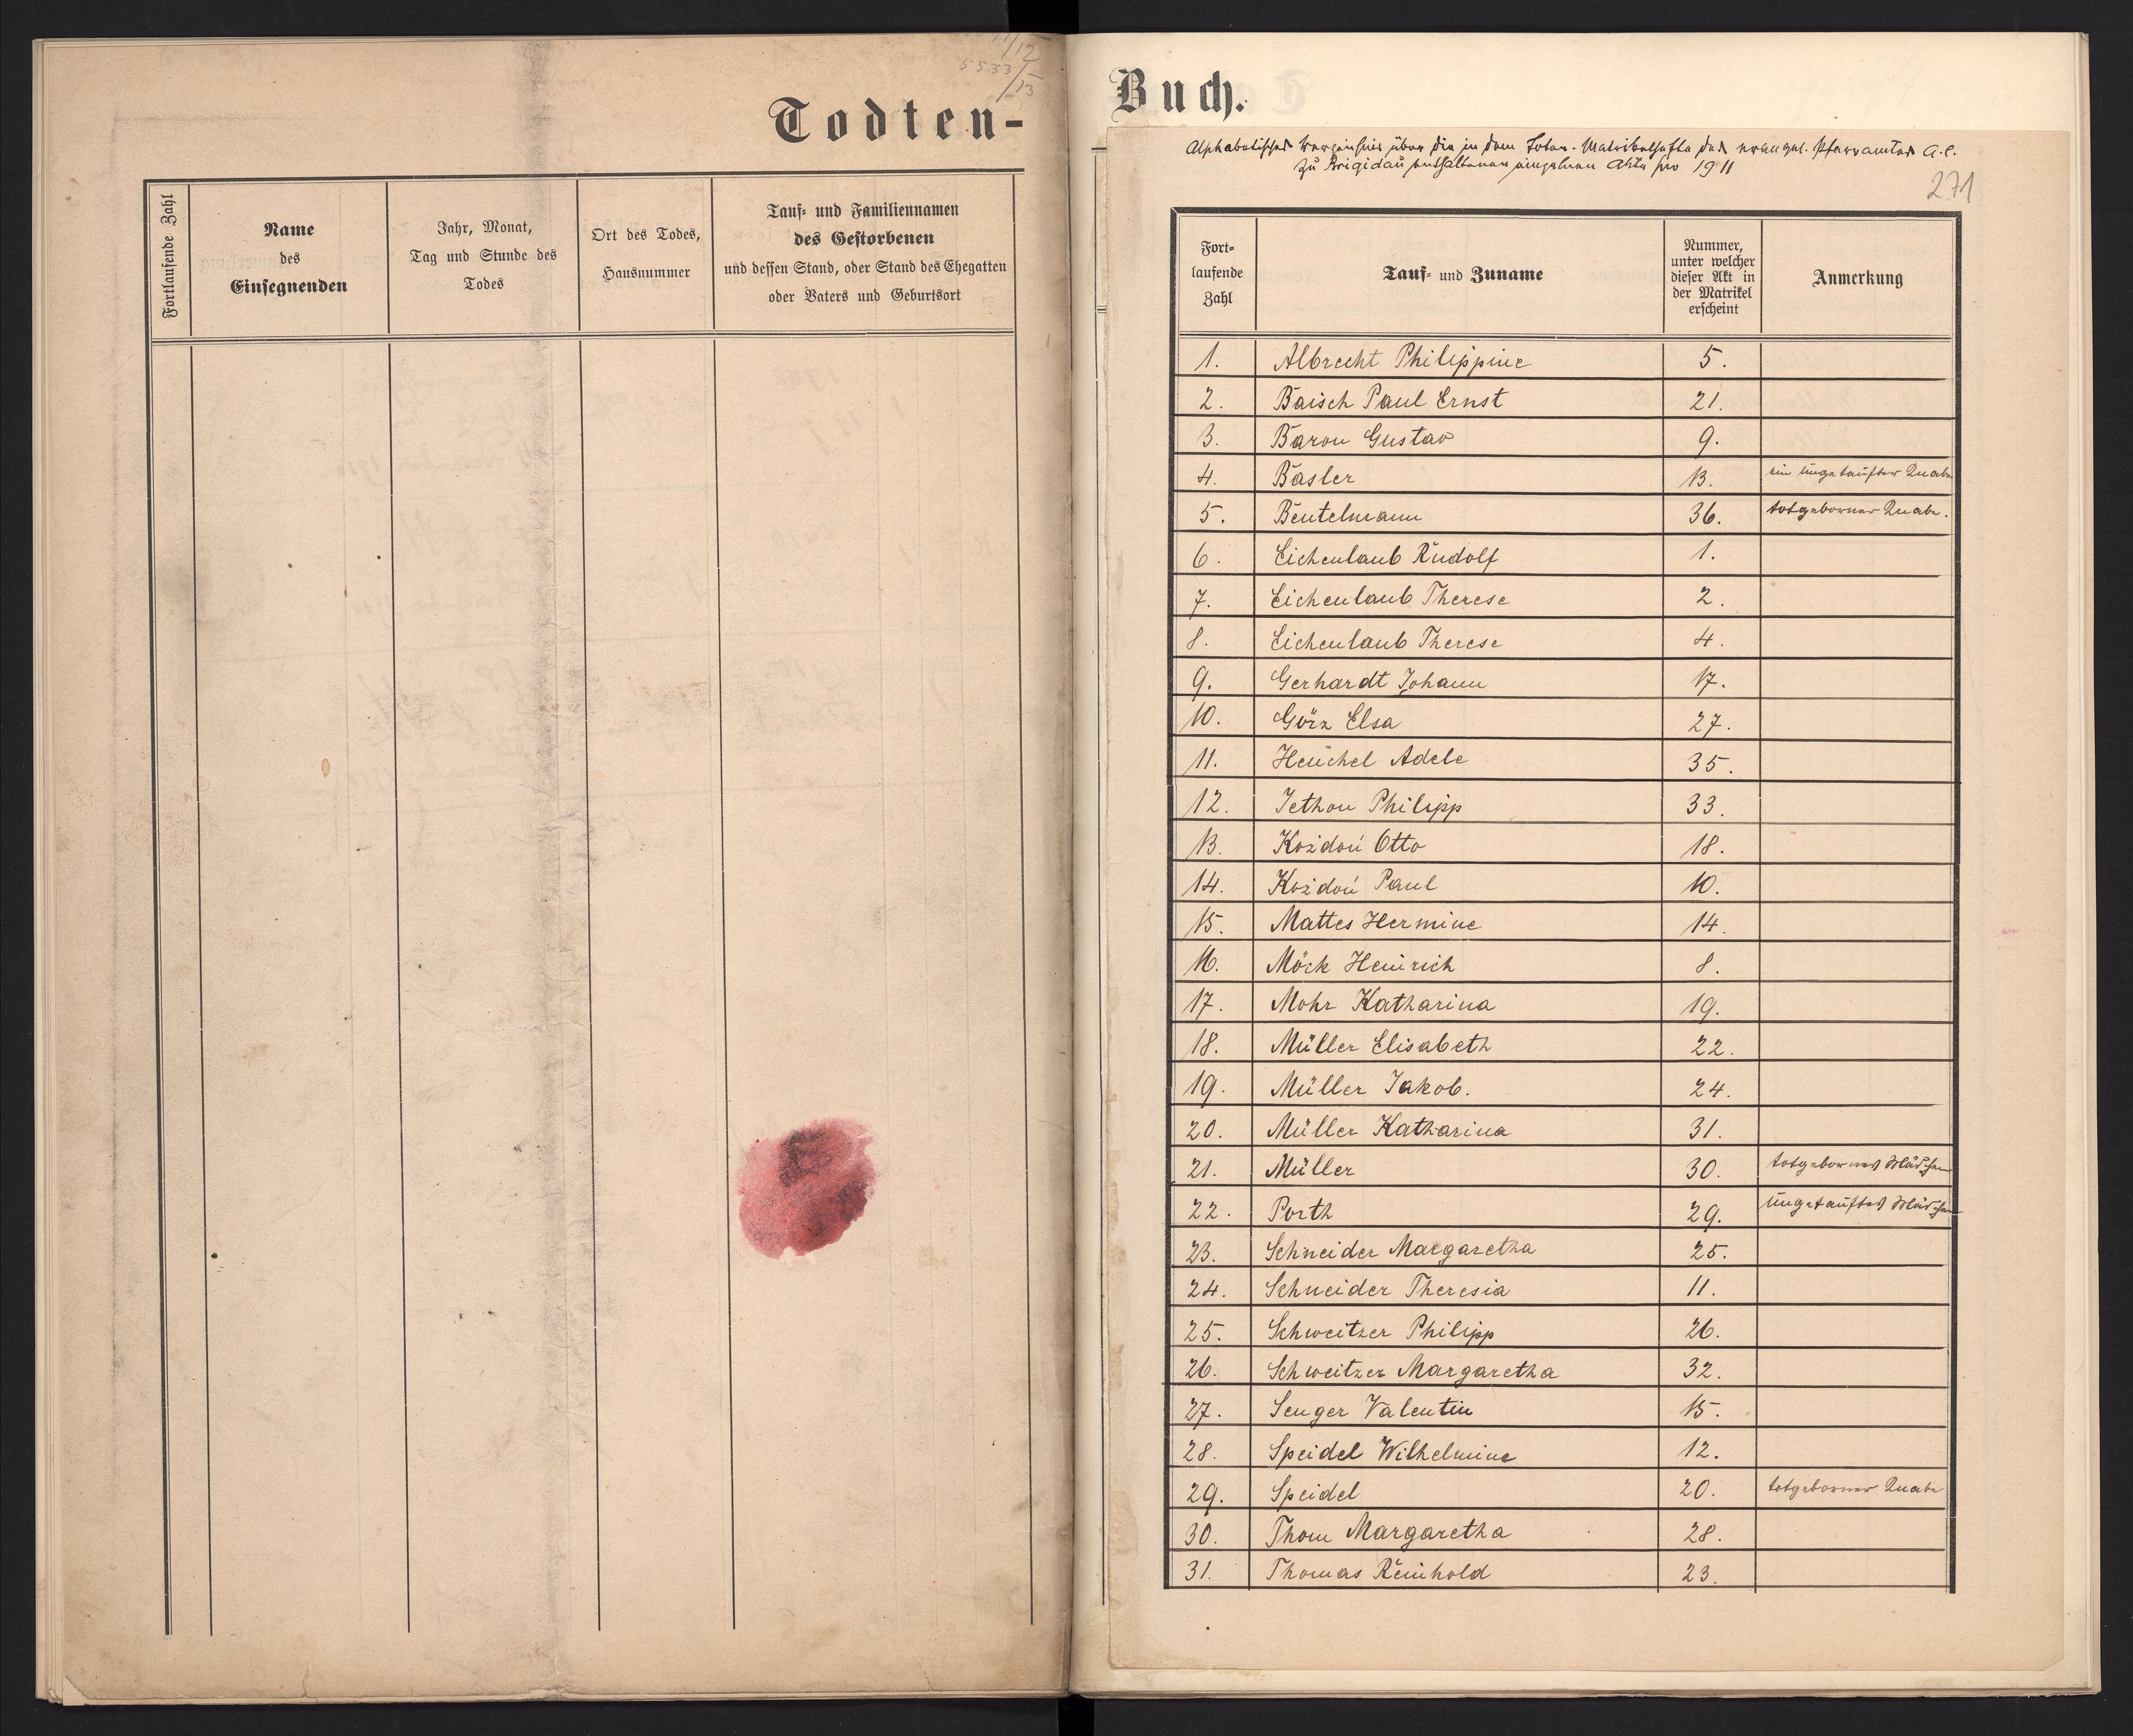 5533/13
Todten-
Fortlaufende Zahl
Name
des
Einsegnenden
Jahr, Monat,
Tag und Stunde des
Todes
Ort des Todes,
Hausnummer
Tauf- und Familiennamen
des Gestorbenen
und dessen Stand, oder Stand des Ehegatten
oder Vaters und Geburtsort
Buch.
Alphabetisches Verzeichnis über die in dem Toten-Matrikelhefte des evangel. Pfarramtes A.C.
zu Brigidau enthaltenen einzelnen Akte pro 1911
271
Fort-
laufende
Zahl
Tauf- und Zuname
Nummer,
unter welcher
dieser Akt in
der Matrikel
erscheint
Anmerkung
1. Albrecht Philippine 5.
2. Baisch Paul Ernst 21.
3. Baron Gustav 9.
4. Basler 13. ein ungetaufter Knabe
5. Beutelmann 36. totgeborner Knabe.
6. Eichenlaub Rudolf 1.
7. Eichenlaub Therese 2.
8. Eichenlaub Therese 4.
9. Gerhardt Johann 17.
10. Görz Elsa 27.
11. Heuchel Adele 35.
12. Jethon Philipp 33.
13. Kożdoń Otto 18.
14. Kożdoń Paul 10.
15. Mattes Hermine 14.
16. Möck Heinrich 8.
17. Mohr Katharina 19.
18. Müller Elisabeth 22.
19. Müller Jakob. 24.
20. Müller Katharina 31.
21. Müller 30. totgebornes Mädchen
22. Porth 29. ungetauftes Mädchen
23. Schneider Margaretha 25.
24. Schneider Theresia 11.
25. Schweitzer Philipp 26.
26. Schweitzer Margaretha 32.
27. Senger Valentin 15.
28. Speidel Wilhelmine 12.
29. Speidel 20. totgeborner Knabe
30. Thom Margaretha 28.
31. Thomas Reinhold 23.